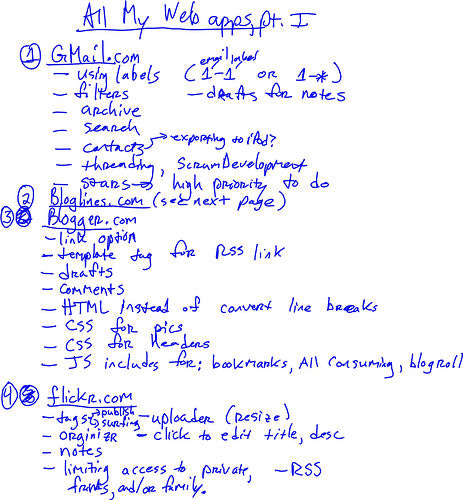 All My Web apps, pt. I
① GMail.com
email label
– using labels (1–1 or 1–*)
– filters – drafts for notes
– archive
– search
– contacts → exporting to iPod?
– threading, ScrumDevelopment
– stars → high priority to do
② Bloglines.com (see next page)
③ Blogger.com
– link option
– template tag for RSS link
– drafts
– comments
– HTML instead of convert line breaks
– CSS for pics
– CSS for Headers
– JS includes for: bookmarks, All Consuming, blogroll
④ flickr.com
– tags → publish – uploader (resize)
→ surfing
– orginizr – click to edit title, desc
– notes
– limiting access to private, – RSS
and/or family.